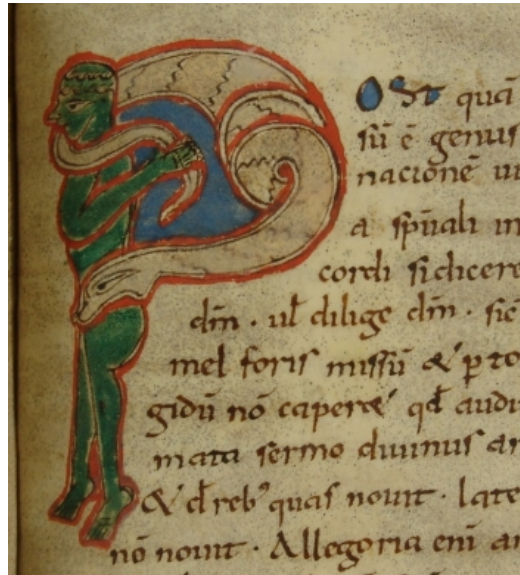 Post quā
sū ē genus
nacionē ui
a sp̄uali in
cordi sidicere
dm̄ · ul̄ dilige dm̄ · sic̄
mel foris missū & ꝑ to
gidū nō capere qd̄ audi
mata sermo diuinus an
& d̄ rebꝰ quas nouit · late
nō nouit · Allegoria eni an